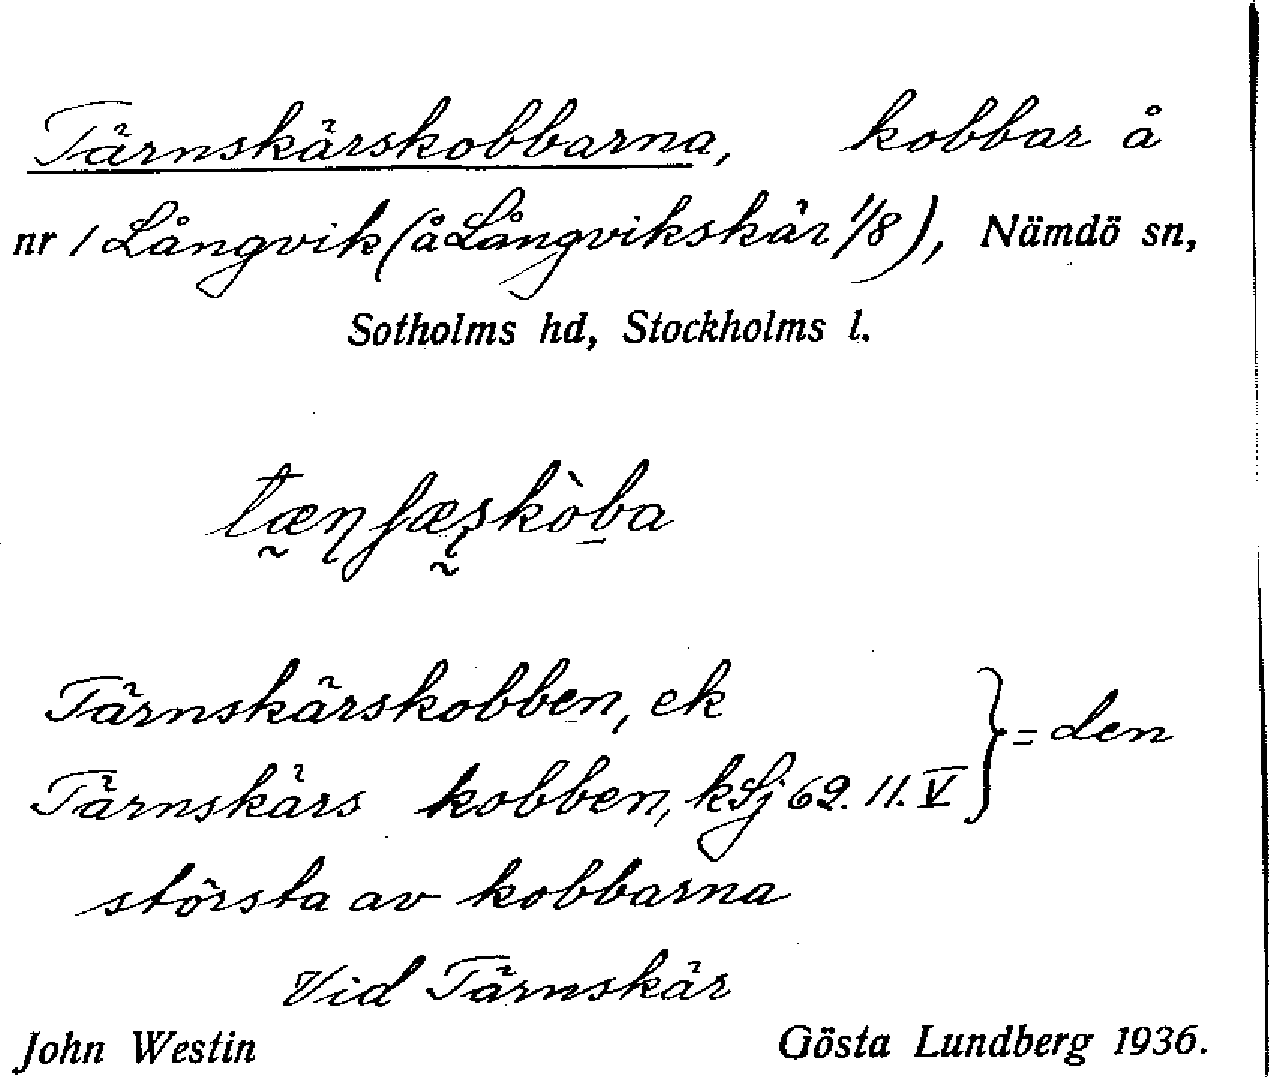 Tärnskärskobbarna, kobbar å
nr 1 Långvik (å Långvikskär 1/8), Nämdö sn,
Sotholms hd, Stockholms l.
tæ̰ɳʃæ̰ʂkòb̠a
Tärnskärskobben, ek
Tärnskärs kobben, kSj 62. 11. V } = den
största av kobbarna
Vid Tärnskär
John Westin Gösta Lundberg 1936.